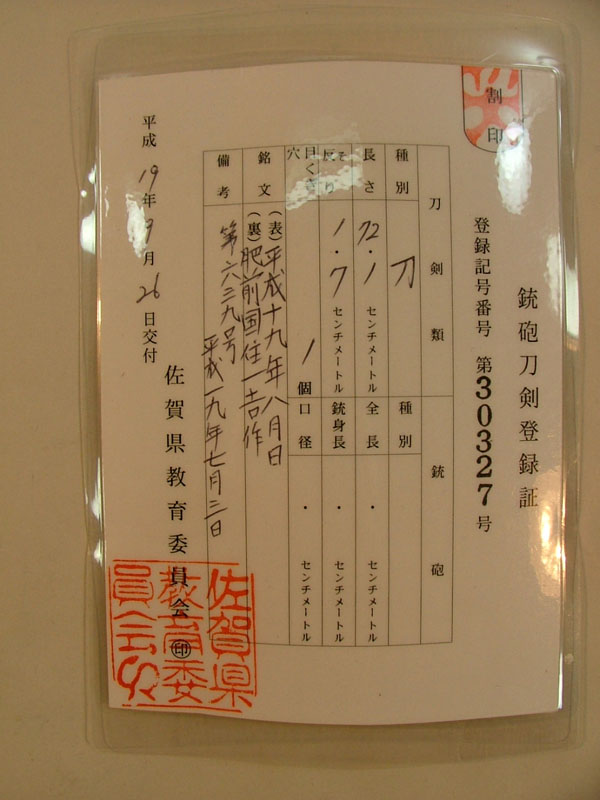 銃砲刀剣登録証
割印
登録記号番号 第30327号
刀剣類
銃砲
種別 刀
種別
長さ 72・1 センチメートル
全長 ・ センチメートル
そり 1・7 センチメートル
銃身長 ・ センチメートル
目くぎ穴 1個
口径 ・ センチメートル
銘文
(表)平成十九年八月日
(裏)肥前国住一吉作
備考
第六三九号
平成一九年七月三日
平成19年9月26日交付
佐賀県教育委員会㊞
佐賀県
教育委
員会印